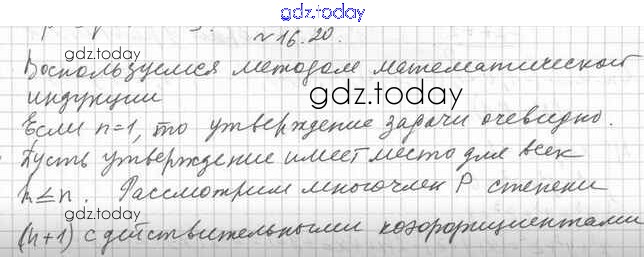 gdz.today
№16.20.
gdz.today
Воспользуемся методом математической
индукции
gdz.today
Если n=1, то утверждение задачи очевидно.
Пусть утверждение имеет место для всех
n≤n. Рассмотрим многочлен P степени
gdz.today
(n+1) с действительными коэффициентами
gdz.today